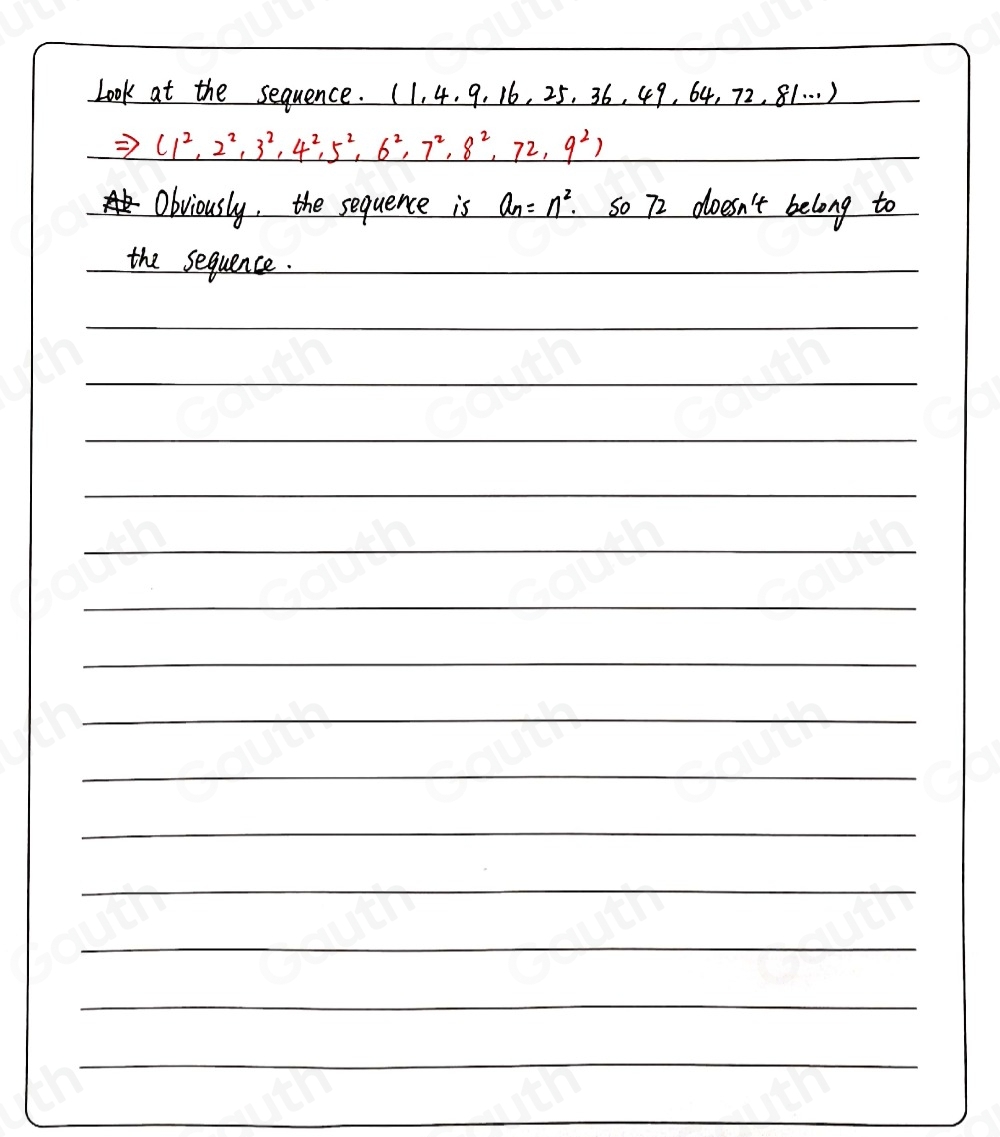 Look at the sequence. (1, 4, 9, 16, 25, 36, 49, 64, 72, 81...)
⇒ (1², 2², 3², 4², 5², 6², 7², 8², 72, 9²)
Obviously, the sequence is an = n². so 72 doesn't belong to
the sequence.